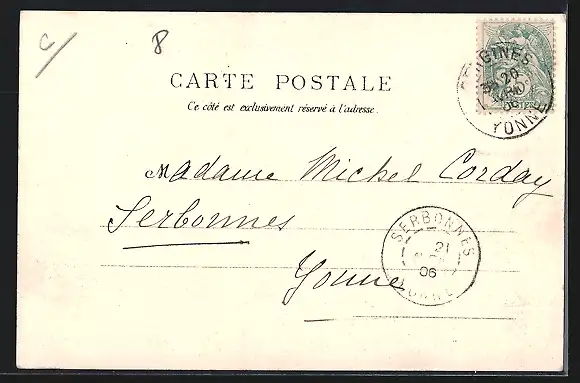 C 8
CARTE POSTALE
Ce côté est exclusivement réservé à l'adresse.
YONNE
20
06
Madame Michel Corday
Serbonnes
Yonne
SERBONNES
21
06
YONNE